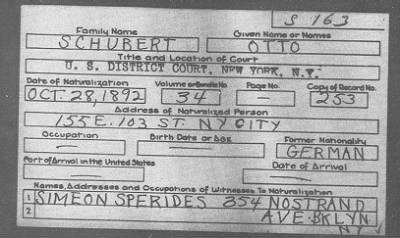 S 163
Family Name Given Name or Names
SCHUBERT OTTO
Title and Location of Court
U. S. DISTRICT COURT, NEW YORK, N.Y.
Date of Naturalization Volume or Bundle No. Page No. Copy of Record No.
OCT. 28, 1892 34 — 253
Address of Naturalized Person
155 E. 103 ST. NY CITY
Occupation Birth Date or Age Former Nationality
— — GERMAN
Port of Arrival in the United States Date of Arrival
— —
Names, Addresses and Occupations of Witnesses To Naturalization
1 SIMEON SPERIDES 354 NOSTRAND
2 AVE. BKLYN
NY